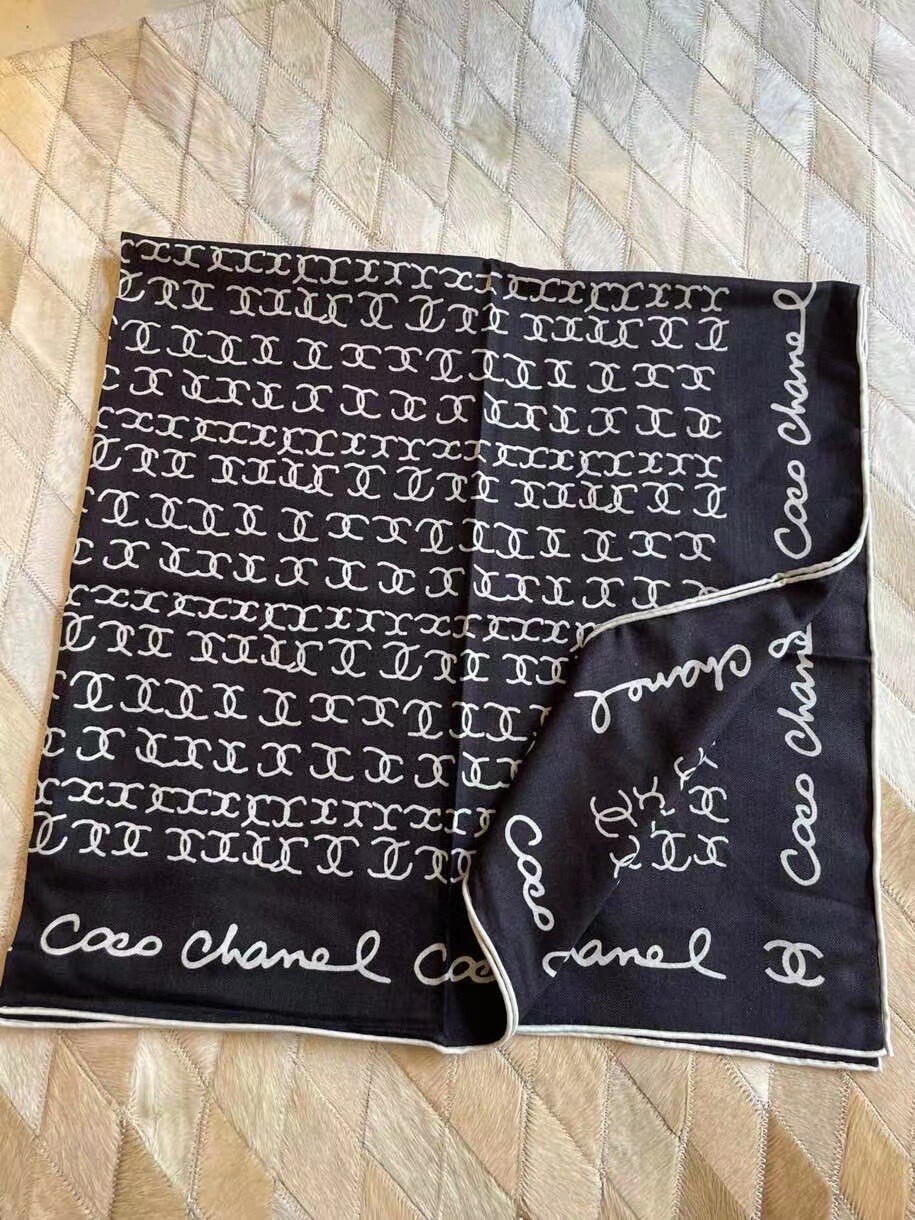 Coco Chanel
Coco Chanel
Chanel
Coco
Coco Chanel
Coco
hanel